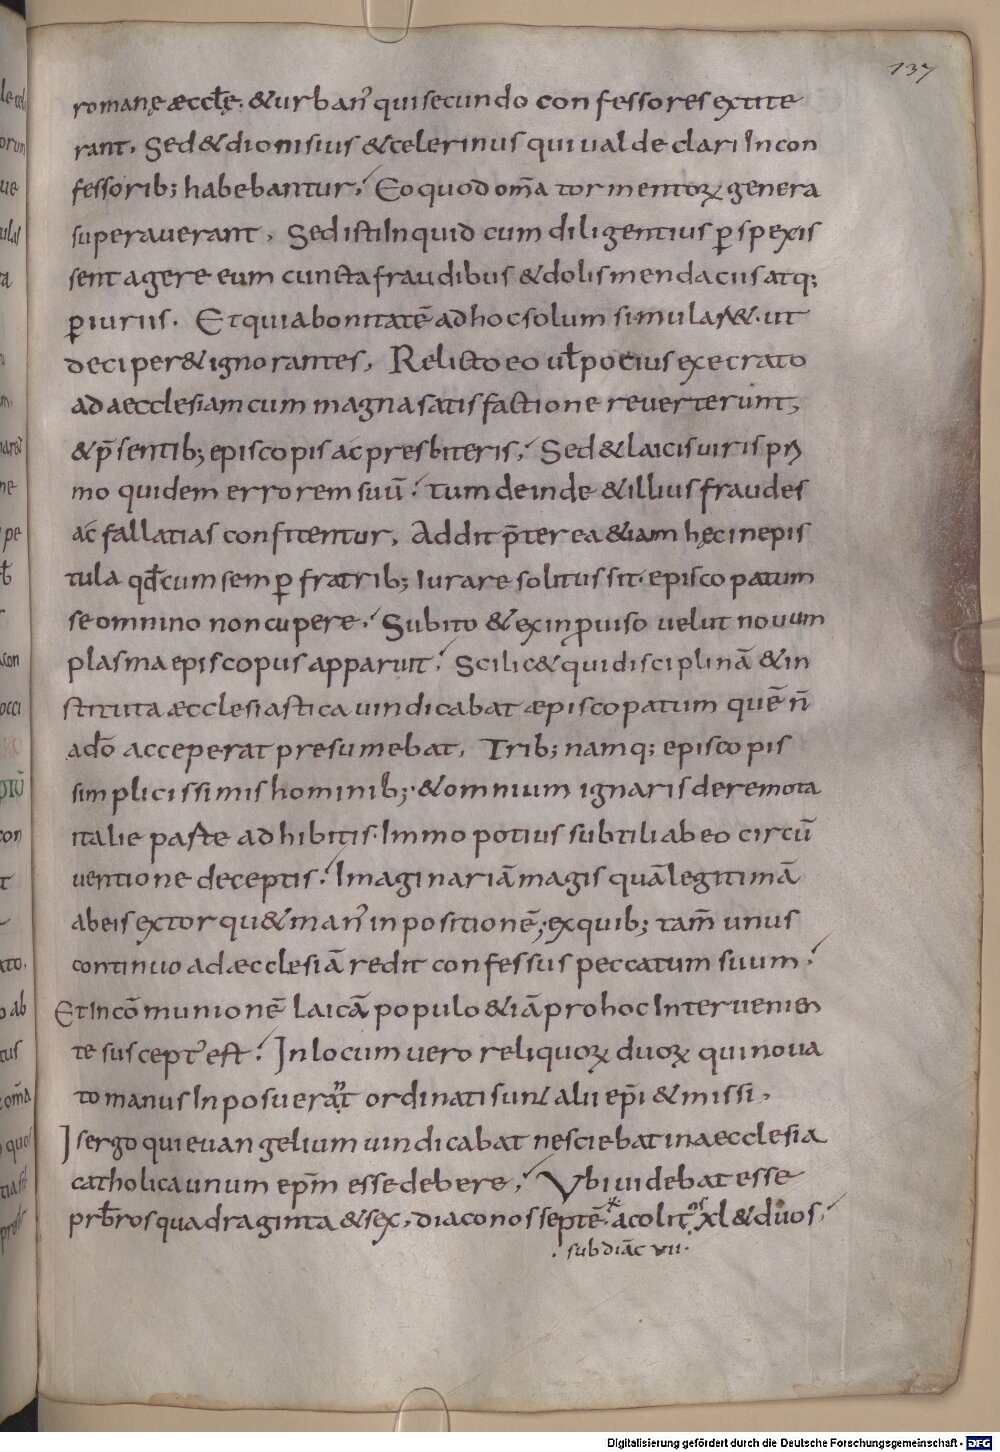 137
romanę æccłę. & urban᾽ qui secundo confessores extite
rant. Sed & dionisius & celerinus qui ualde clari In con
fessorib; habebantur. Eo quod om̄a tormentoꝝ genera
superauerant. Sed isti Inquid cum diligentius ꝑspexis
sent agere eum cuncta fraudibus & dolis mendaciis atq;
ꝑiuriis. Et quia bonitatē ad hoc solum simular&. ut
deciper& ignorantes. Relicto eo uł potius execrato
ad aecclesiam cum magna satisfactione reuerterunt,
& p̄sentib; episcopis ac presbiteris. Sed & laicis uiris pri
mo quidem errorem suū. tum deinde & illius fraudes
ac fallatias confitentur. Addit p̄terea &iam hęc in epis
tula qđ cum semꝑ fratrib; Iurare solitus sit. episcopatum
se omnino non cupere. Subito & ex inprouiso uelut nouum
plasma episcopus apparuit. Scilic& qui disciplinā & in
stituta æcclesiastica uindicabat æpiscopatum quē n̄
a dō acceperat presumebat. Trib; namq; episcopis
simplicissimis hominib;. & omnium ignaris de remota
italie parte adhibitis. Immo potius subtili ab eo circū
uentione deceptis. Imaginariā magis quā legitimā
ab eis extorqu& man᾽ inpositionē; ex quib; tam̄ unus
continuo ad æcclesiā redit confessus peccatum suum.
Et In cōmunionē laicā populo &iā pro hoc Interuenien
te suscept᾽ est. In locum uero reliquoꝝ duoꝝ qui noua
to manus Inposuerant ordinati sunt alii ep̄i & missi.
Is ergo qui euangelium uindicabat nesciebat in aecclesia
catholica unum ep̄m esse debere. Ubi uidebat esse
prƀros quadraginta & sex, diaconos septē. acolitos xl & duos.
. subdiac̄ vii.
Digitalisierung gefördert durch die Deutsche Forschungsgemeinschaft - DFG